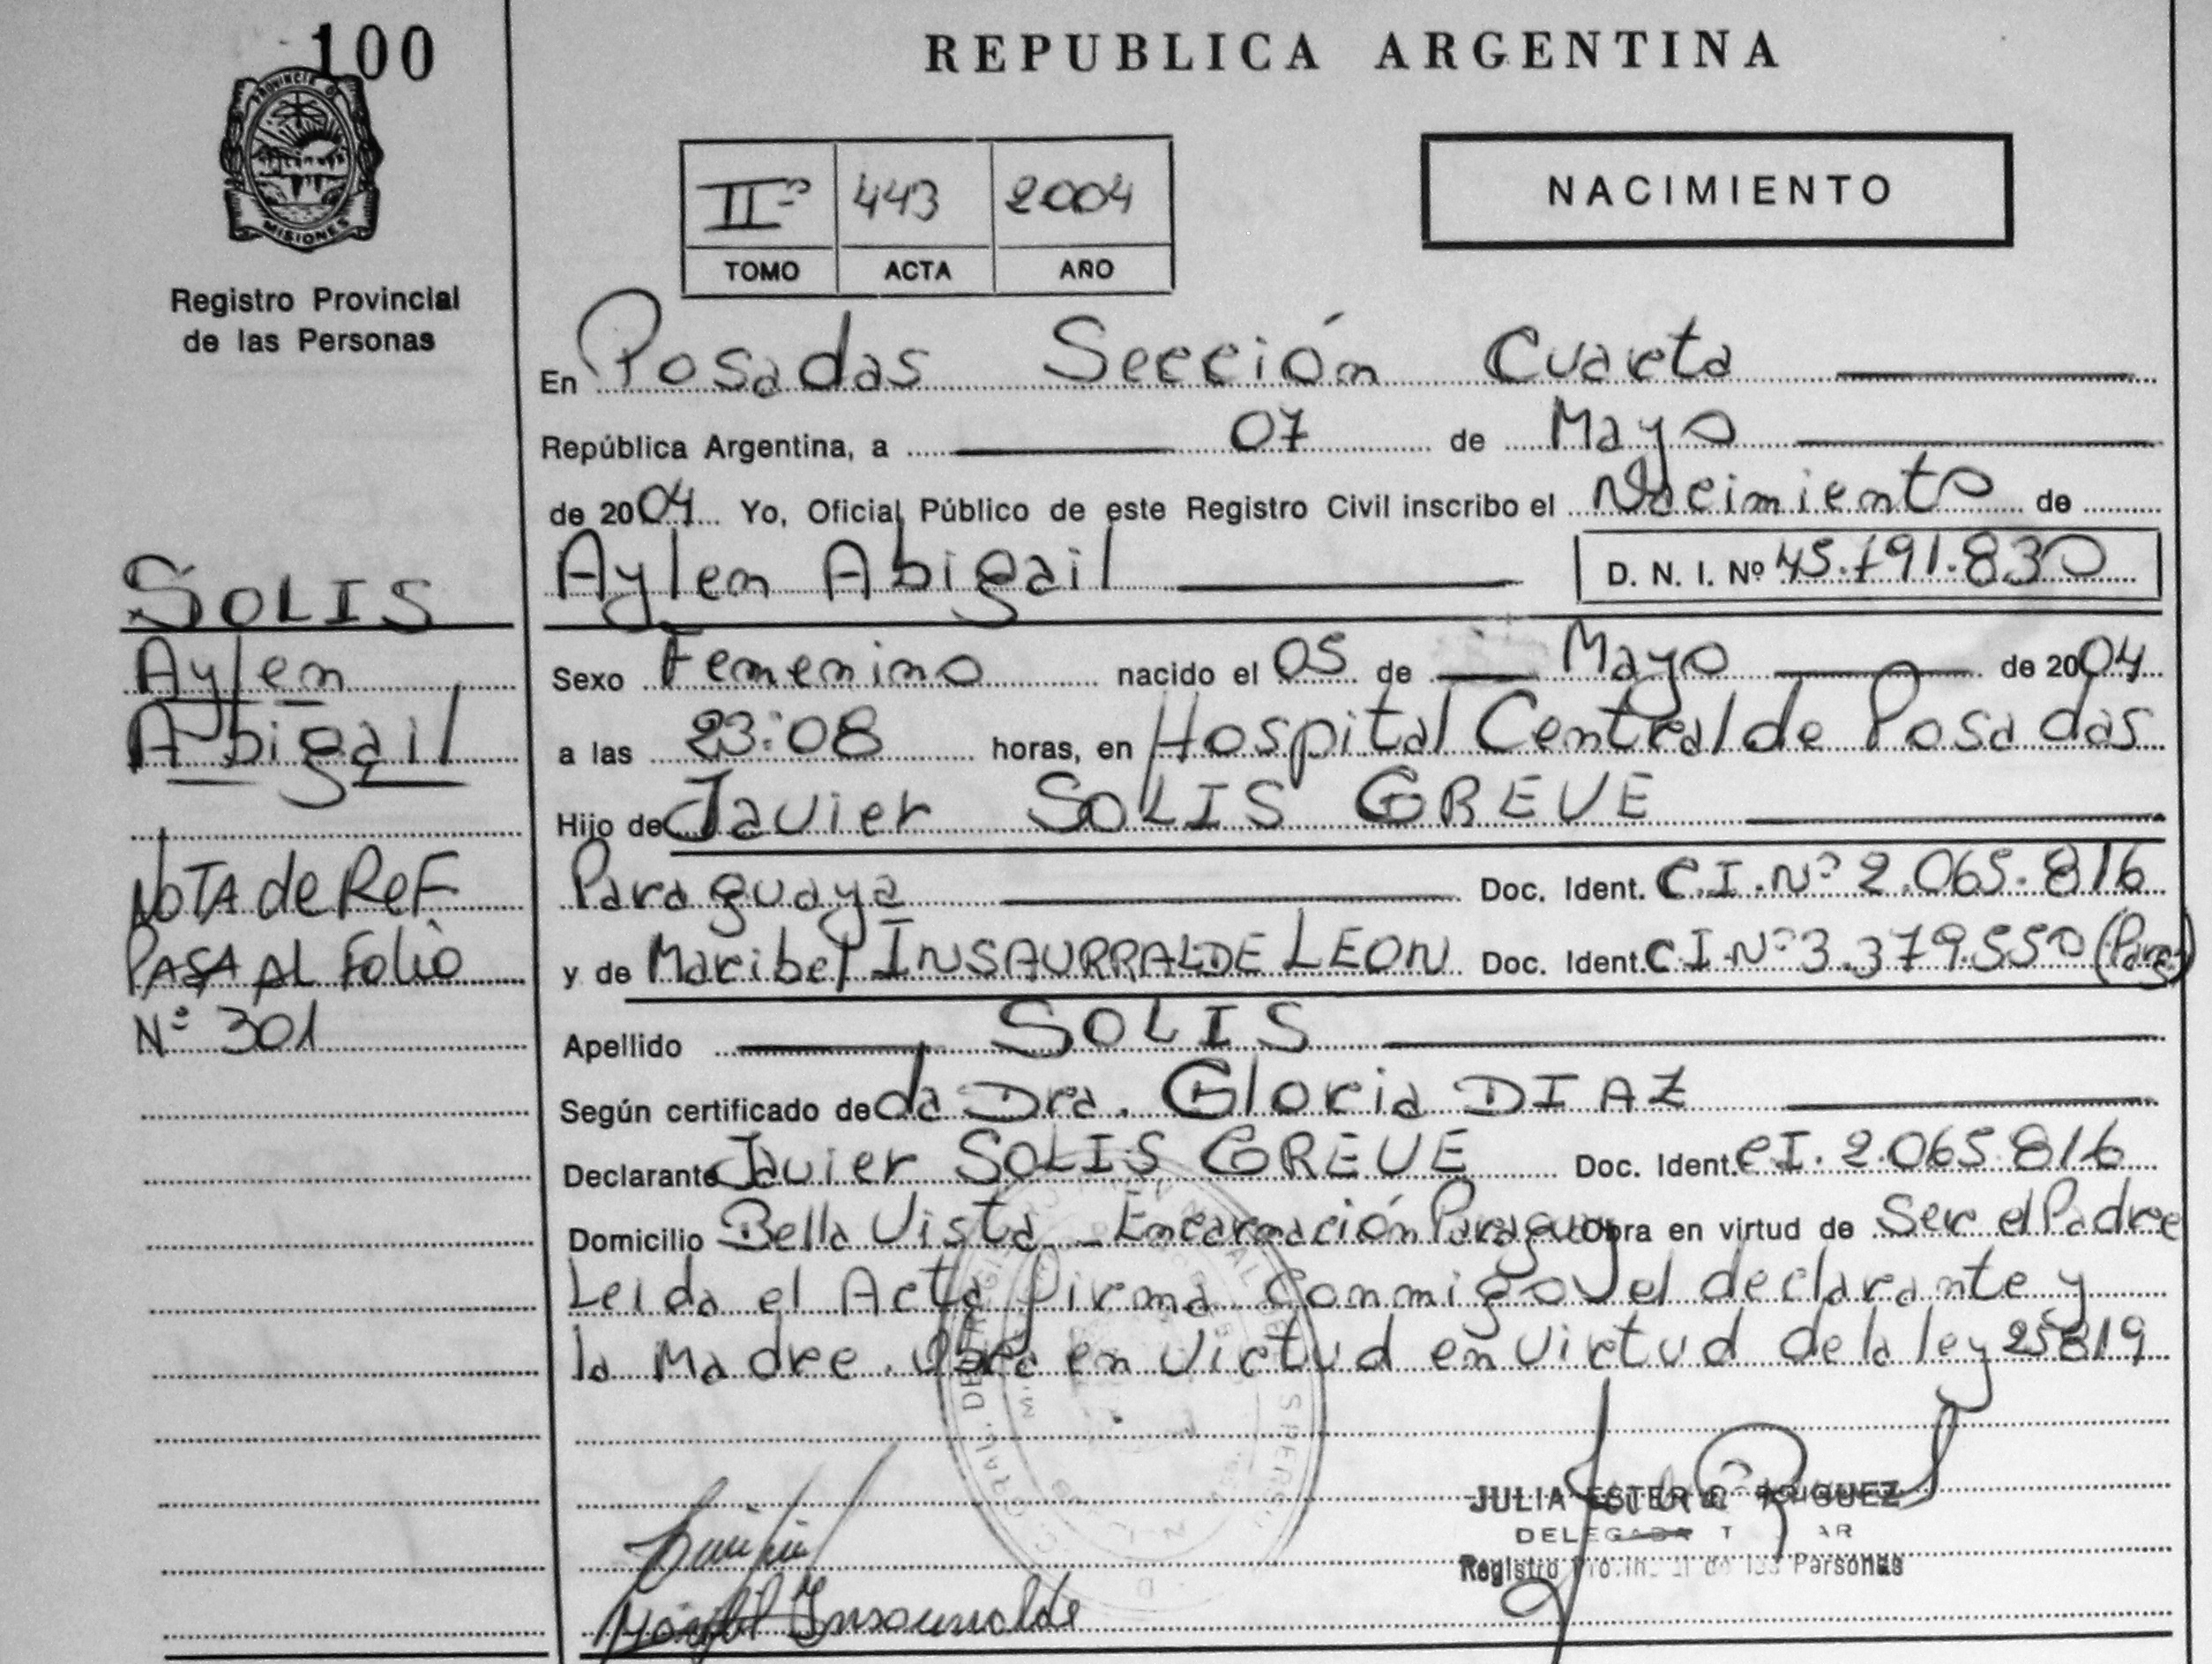 100
PROVINCIA DE
MISIONES
Registro Provincial
de las Personas
REPUBLICA ARGENTINA
IIº 443 2004
TOMO ACTA AÑO
NACIMIENTO
En Posadas Sección Cuarta
República Argentina, a 07 de Mayo
de 2004 Yo, Oficial Público de este Registro Civil inscribo el Nacimiento de
Aylen Abigail D. N. I. Nº 45.191.830
Sexo Femenino nacido el 05 de Mayo de 2004
a las 23:08 horas, en Hospital Central de Posadas
Hijo de Javier SOLIS GREVE
Paraguaya Doc. Ident. C.I.Nº 2.065.816
y de Maribel INSAURRALDE LEON Doc. Ident. C.I.Nº 3.379.550 (Parag)
Apellido SOLIS
Según certificado de da Dra. Gloria DIAZ
Declarante Javier SOLIS GREVE Doc. Ident. CI. 2.065.816
Domicilio Bella Vista - Encarnación Paraguay Obra en virtud de Ser el Padre
Leida el Acta firma conmigo el declarante y
la Madre. Obra en virtud en virtud de la ley 25819
SOLIS
Aylen
Abigail
NOTA de ReF
PASA AL Folio
Nº 301
JULIA ESTER RODRIGUEZ
DELEGADA TITULAR
Registro Provincial de las Personas
Maribel Insaurralde